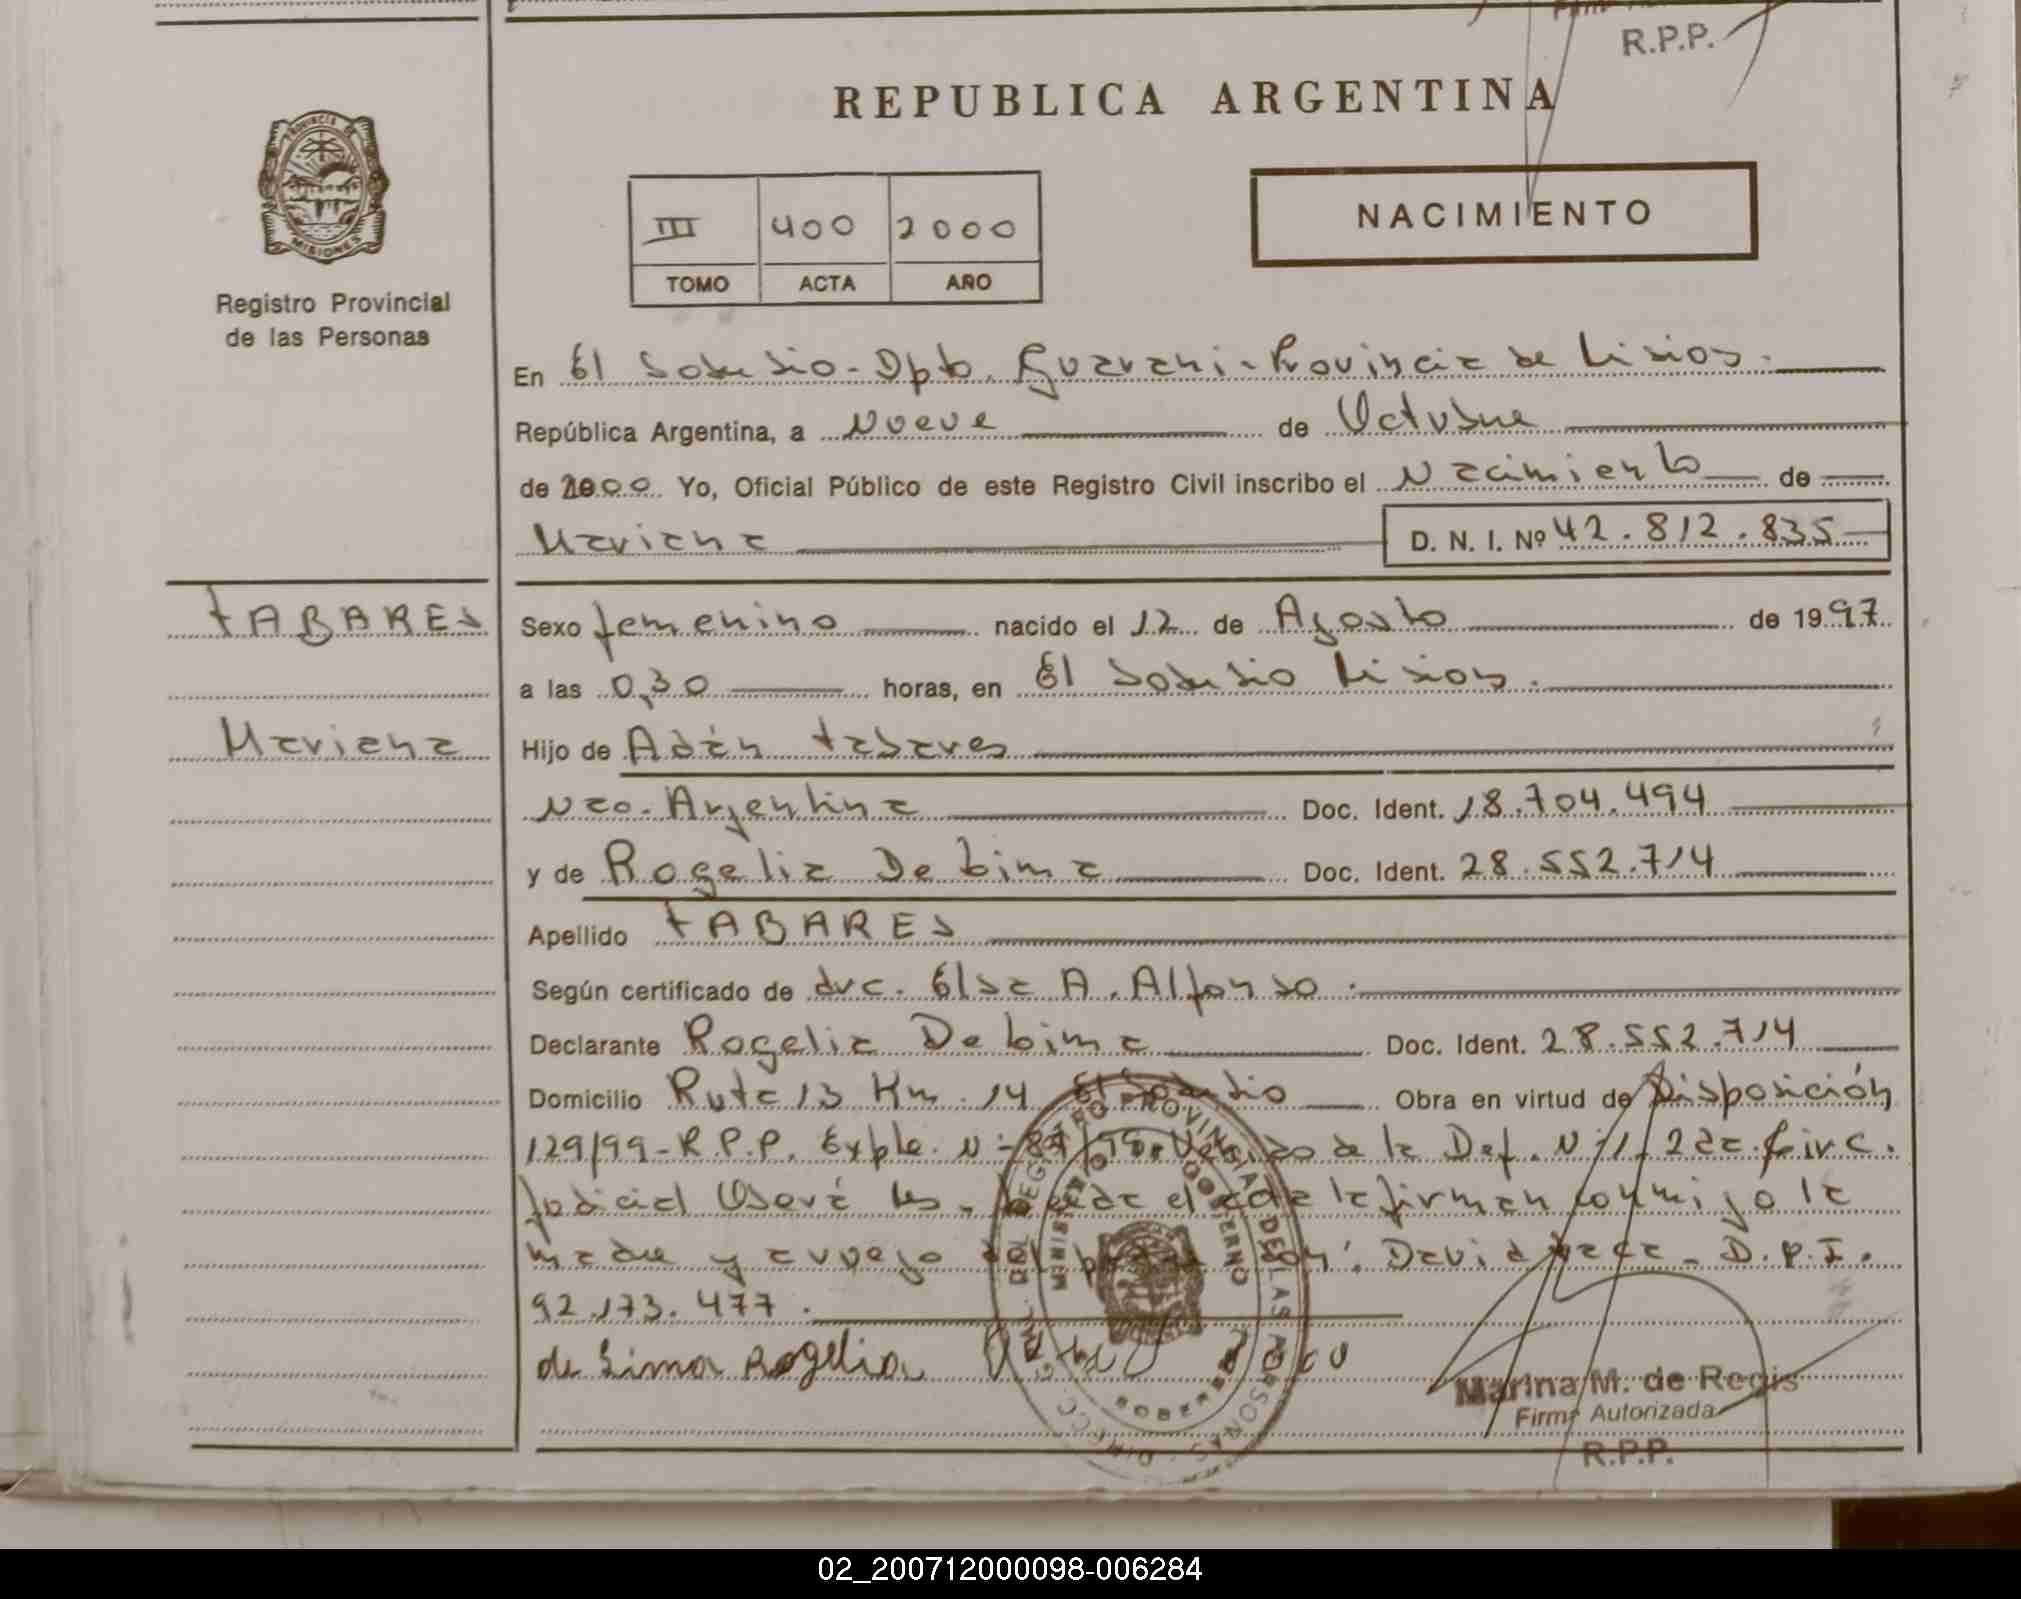 R.P.P.
REPUBLICA ARGENTINA
PROVINCIA DE
MISIONES
Registro Provincial
de las Personas
III 400 2000
TOMO ACTA AÑO
NACIMIENTO
En El Soberbio - Dpto. Guarani - Provincia de Misiones.
República Argentina, a Nueve de Octubre
de 2000 Yo, Oficial Público de este Registro Civil inscribo el Nacimiento de
Mariana D. N. I. Nº 42.812.835
TABARES
Sexo femenino nacido el 12 de Agosto de 1997
a las 0,30 horas, en El Soberbio Misiones.
Mariana
Hijo de Adán Tabares
Nac. Argentina Doc. Ident. 18.704.494
y de Rogelia De Lima Doc. Ident. 28.552.714
Apellido TABARES
Según certificado de Elsa A. Alfonso.
Declarante Rogelia De Lima Doc. Ident. 28.552.714
Domicilio Ruta 13 Km. 14 El Soberbio Obra en virtud de Disposición
129/99 - R.P.P. Expte. N- de la Def. N-1- 2da. Circ.
Judicial Oberá firman conmigo la
madre y David D.P.I.
92.173.477.
de Lima Rogelia
Marina M. de Regis
Firma Autorizada
R.P.P.
02_200712000098-006284